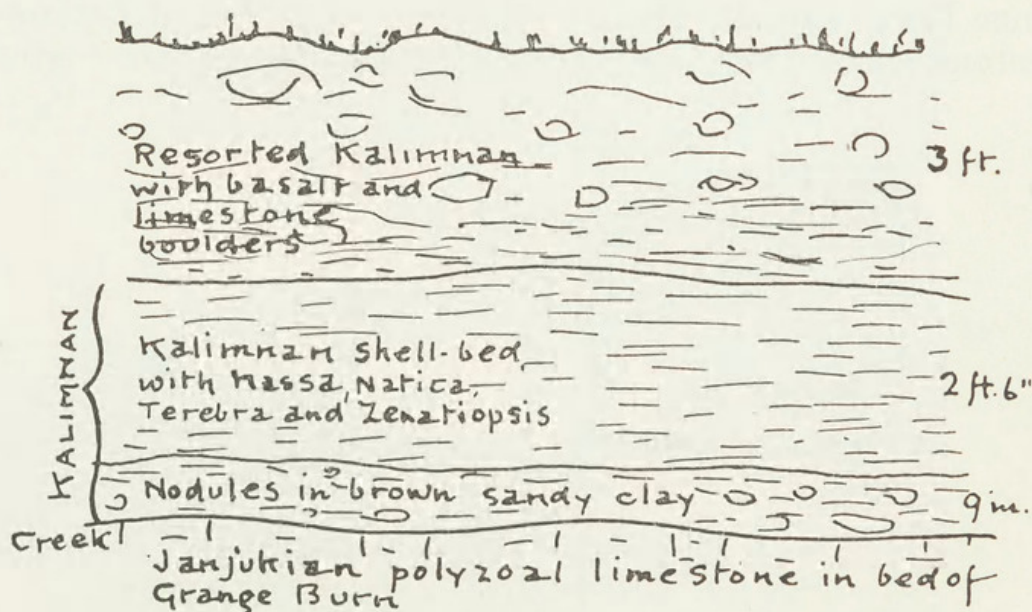 Resorted Kalimnan
with basalt and
limestone
boulders
3 ft.
KALIMNAN
Kalimnan shell-bed
with Nassa, Natica,
Terebra and Zenatiopsis
2 ft. 6"
Nodules in brown sandy clay
9 in.
Creek
Janjukian polyzoal limestone in bed of
Grange Burn